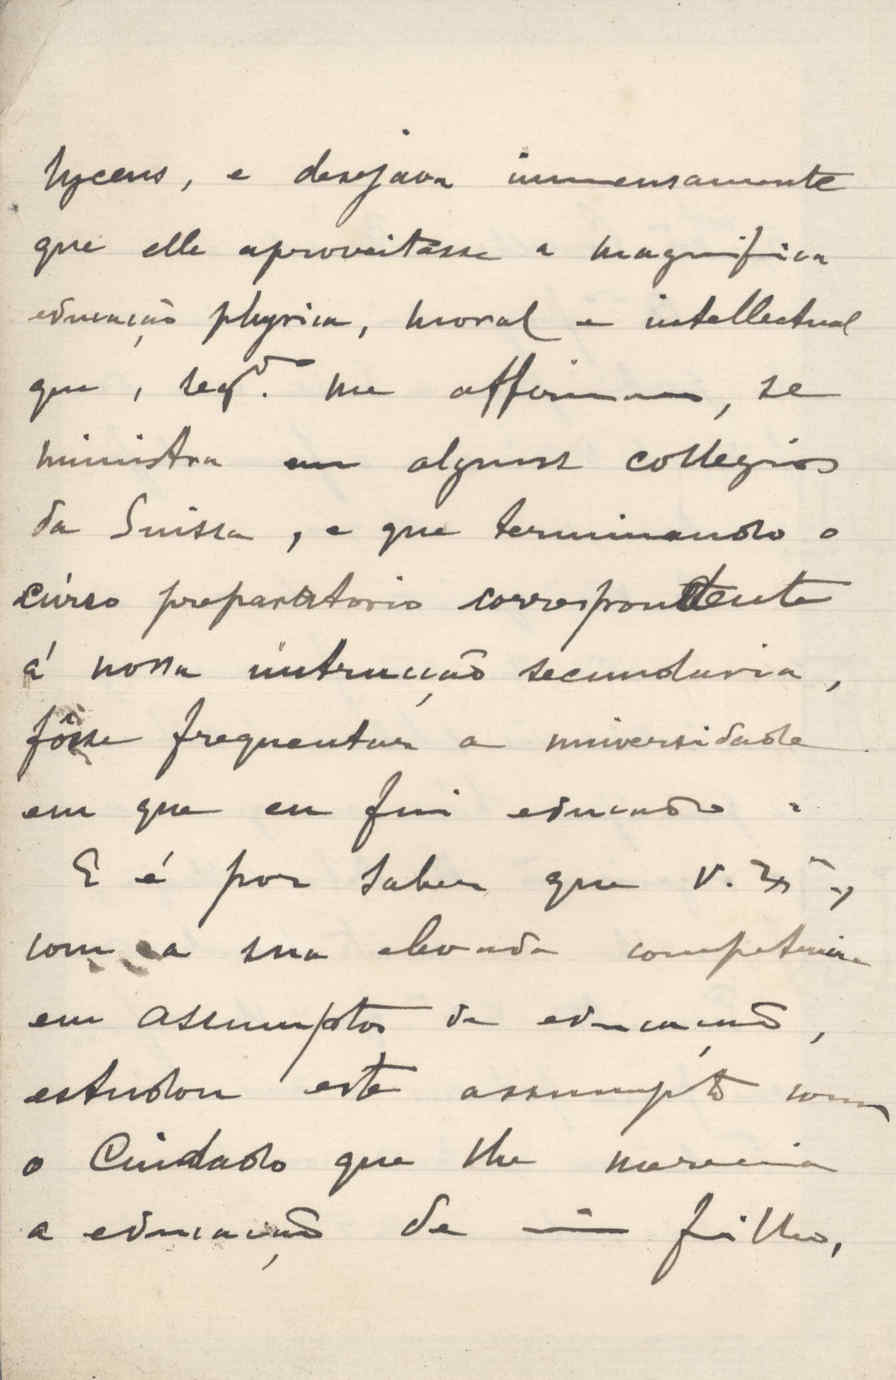 lyceus, e desejava immensamente
que elle aproveitasse a magnifica
educação physica, moral e intellectual
que, segdo. me affirmam, se
ministra em alguns collegios
da Suissa, e que terminando o
curso preparatorio correspondente
á nossa instrucção secundaria,
fôsse frequentar a universidade
em que eu fui educado.
E é por saber que V. Exª,
com a sua elevada competencia
em assumptos de educação,
estudou este assumpto com
o cuidado que lhe merecia
a educação de um filho,